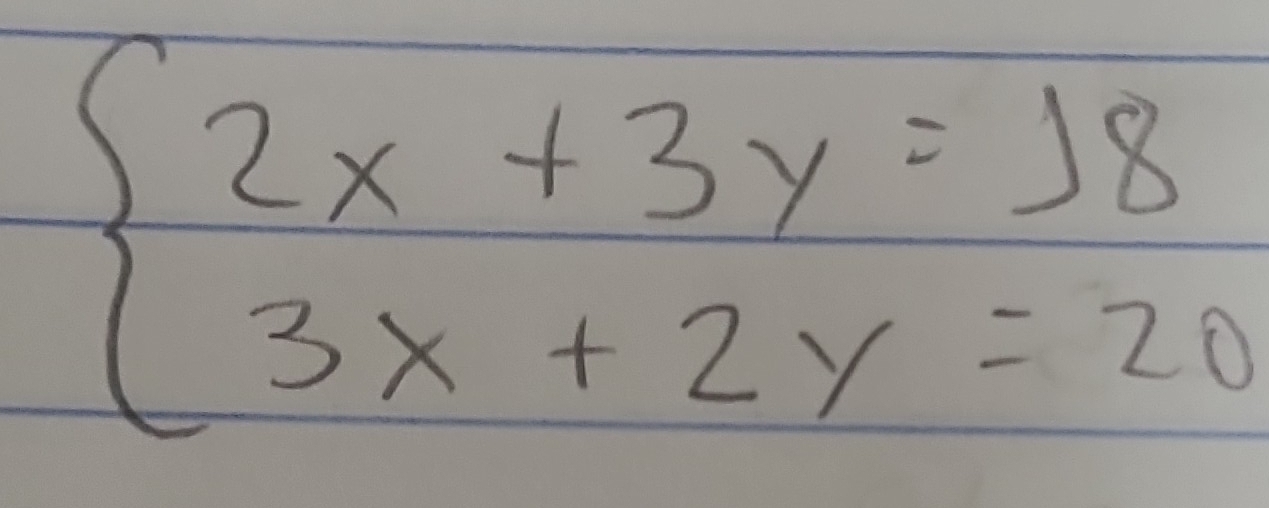 2x + 3y = 18
3x + 2y = 20